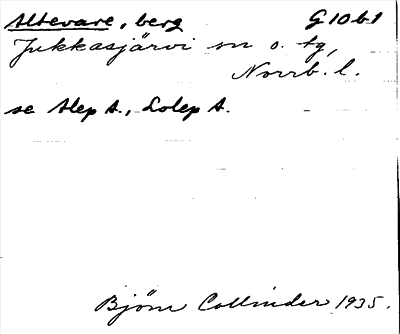 Altevare, berg G 10 b 1
Jukkasjärvi sn o. tg,
Norrb. l.
se Alep A., Lolep A.
Björn Collinder 1935.